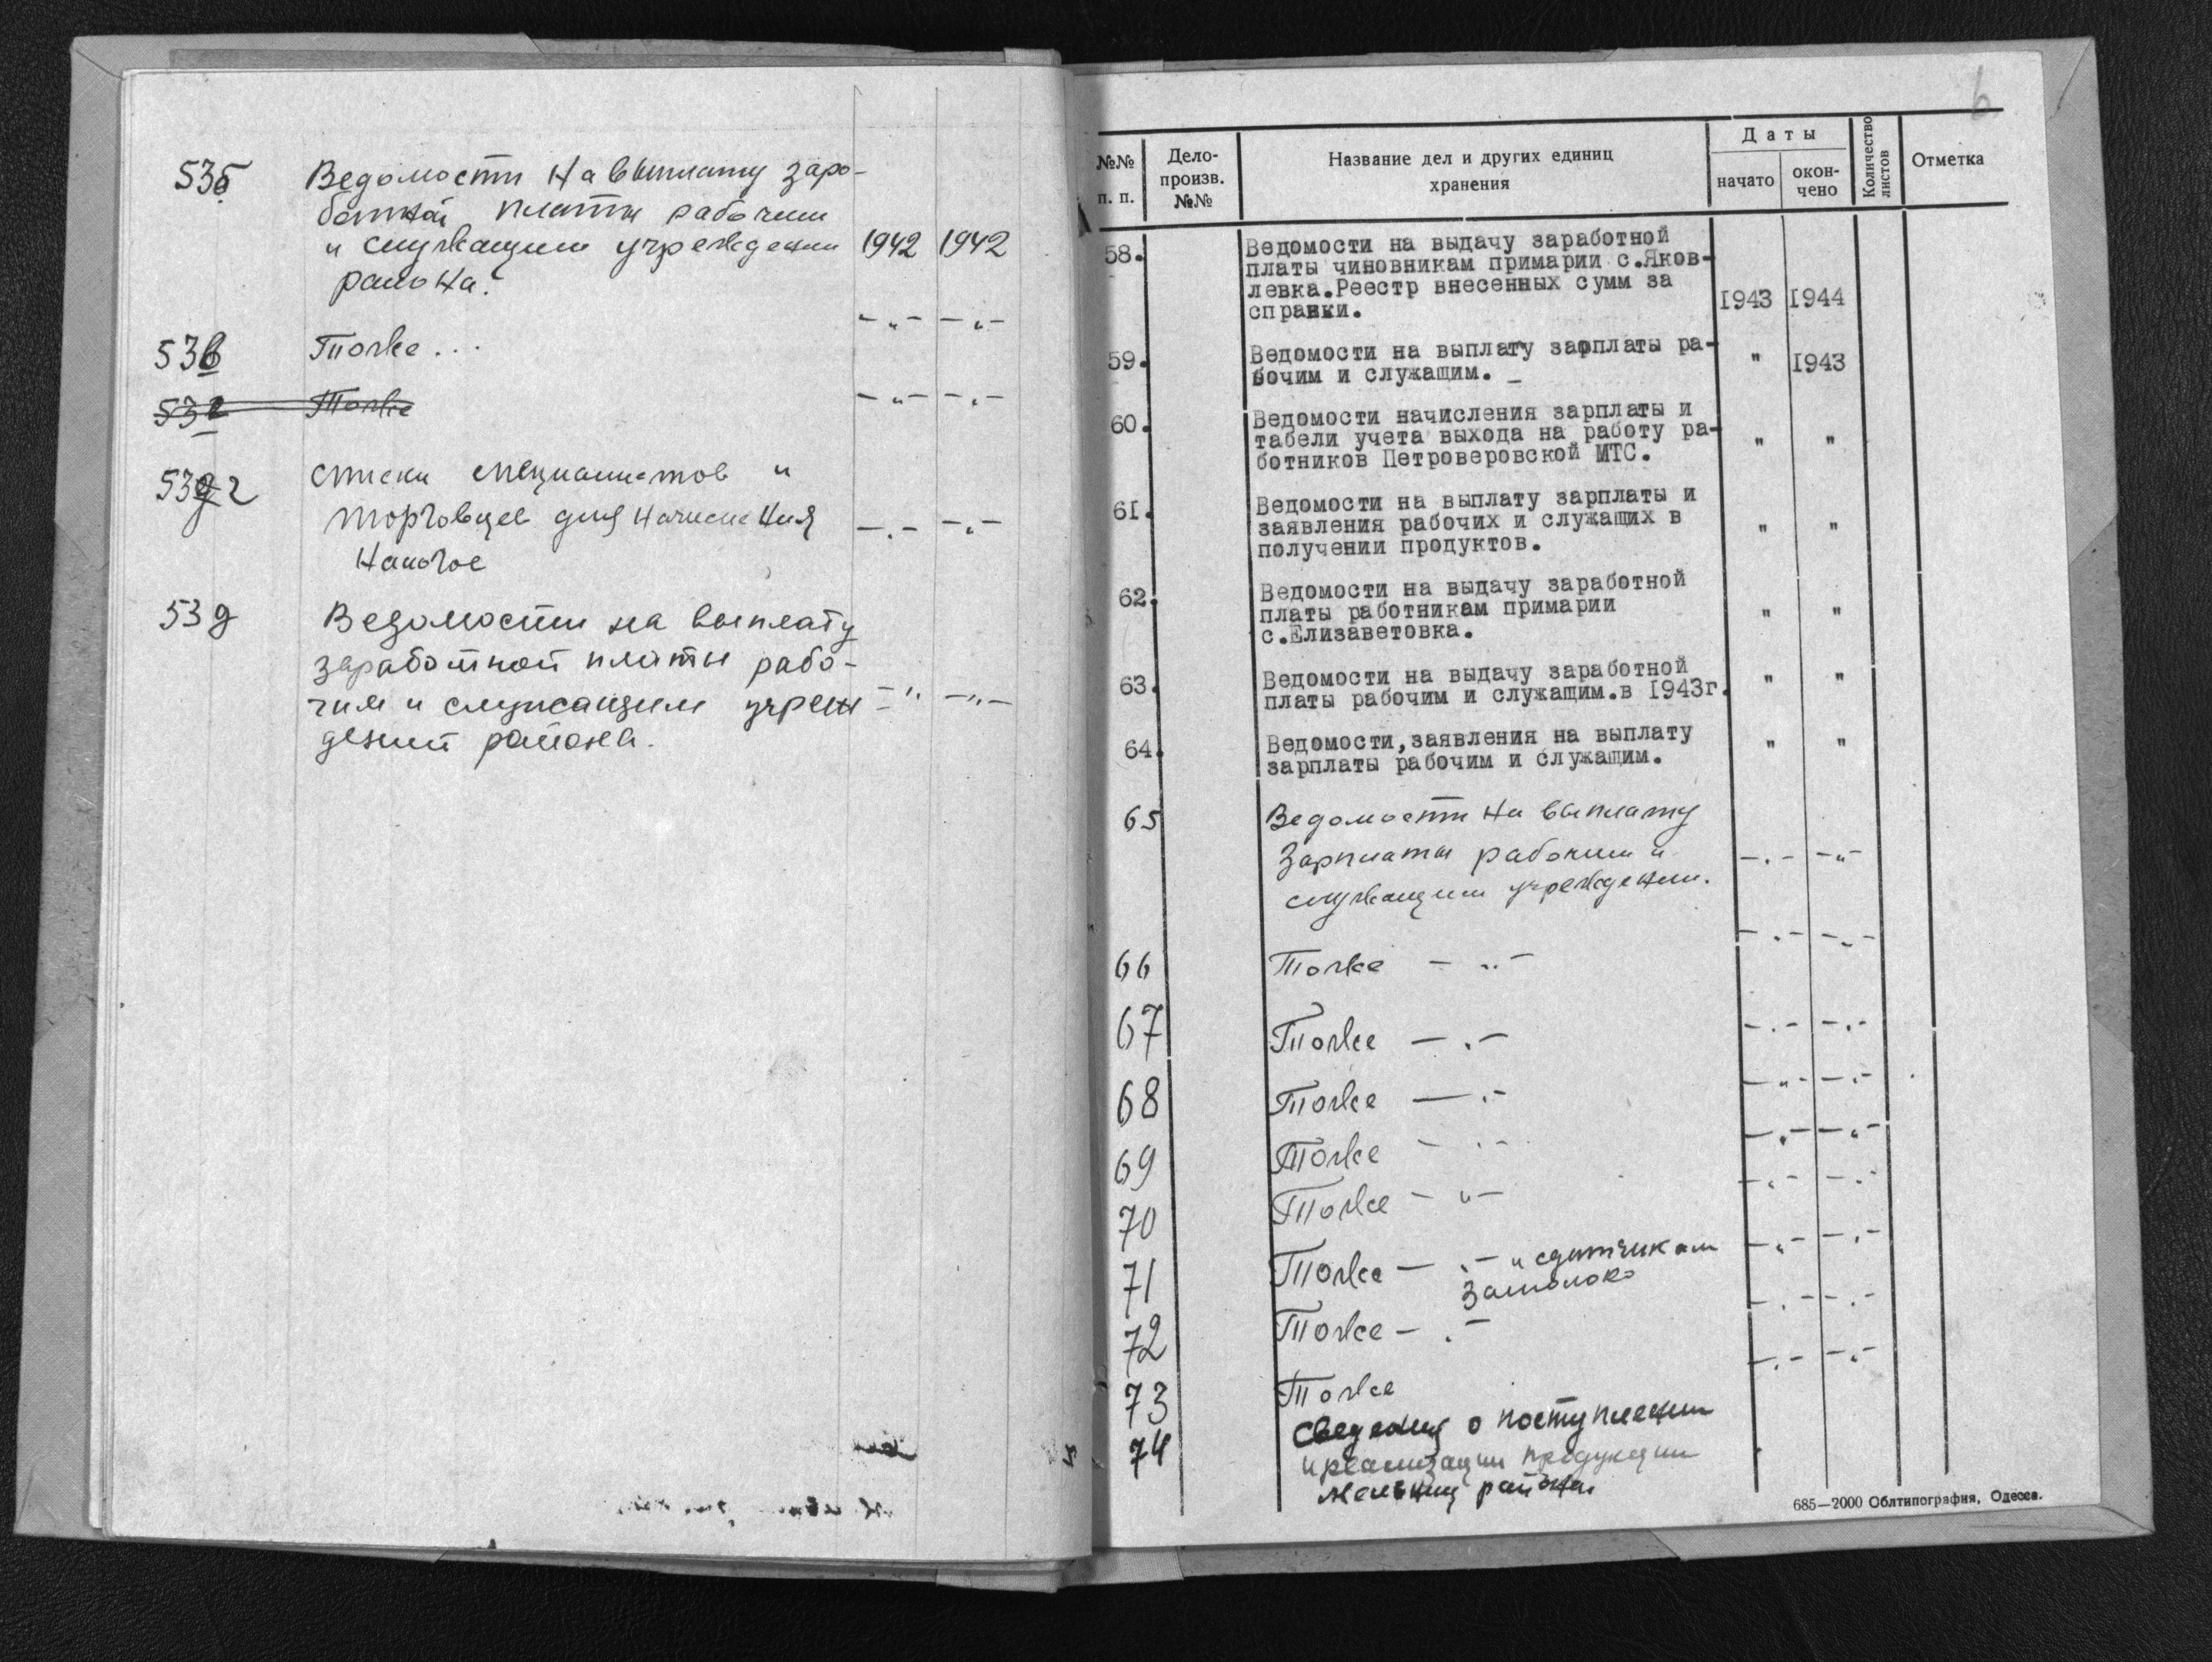 53б Ведомости на выплату зара-
ботной платы рабочим
и служащим учреждении 1942 1942
района.
53в Тоже ... -"- -"-
53г Тоже -"- -"-
53д г Списки специалистов и
торговцев для начисления -"- -"-
налогов
53д Ведомости на выплату
заработной платы рабо-
чим и служащим учреж -"- -"-
дений района.
6
№№ п. п. Дело- произв. №№ Название дел и других единиц хранения Даты начато окон- чено Количество листов Отметка
58. Ведомости на выдачу заработной
платы чиновникам примарии с.Яков-
левка.Реестр внесенных сумм за
справки. 1943 1944
59. Ведомости на выплату зарплаты ра-
бочим и служащим. " 1943
60. Ведомости начисления зарплаты и
табели учета выхода на работу ра-
ботников Петроверовской МТС. " "
61. Ведомости на выплату зарплаты и
заявления рабочих и служащих в
получении продуктов. " "
62. Ведомости на выдачу заработной
платы работникам примарии
с.Елизаветовка. " "
63. Ведомости на выдачу заработной
платы рабочим и служащим.в 1943г. " "
64. Ведомости,заявления на выплату
зарплаты рабочим и служащим. " "
65 Ведомости на выплату
зарплаты рабочим и -"- -"-
служащим учреждении.
66 Тоже -"- -"- -"-
67 Тоже -"- -"- -"-
68 Тоже -"- -"- -"-
69 Тоже -"- -"- -"-
70 Тоже -"- -"- -"-
71 Тоже -"- и сдатчикам -"- -"-
за молоко
72 Тоже -"- -"- -"-
73 Тоже -"- -"-
74 Сведения о поступлении
и реализации продукции
мельниц района
685—2000 Облтипография, Одесса.